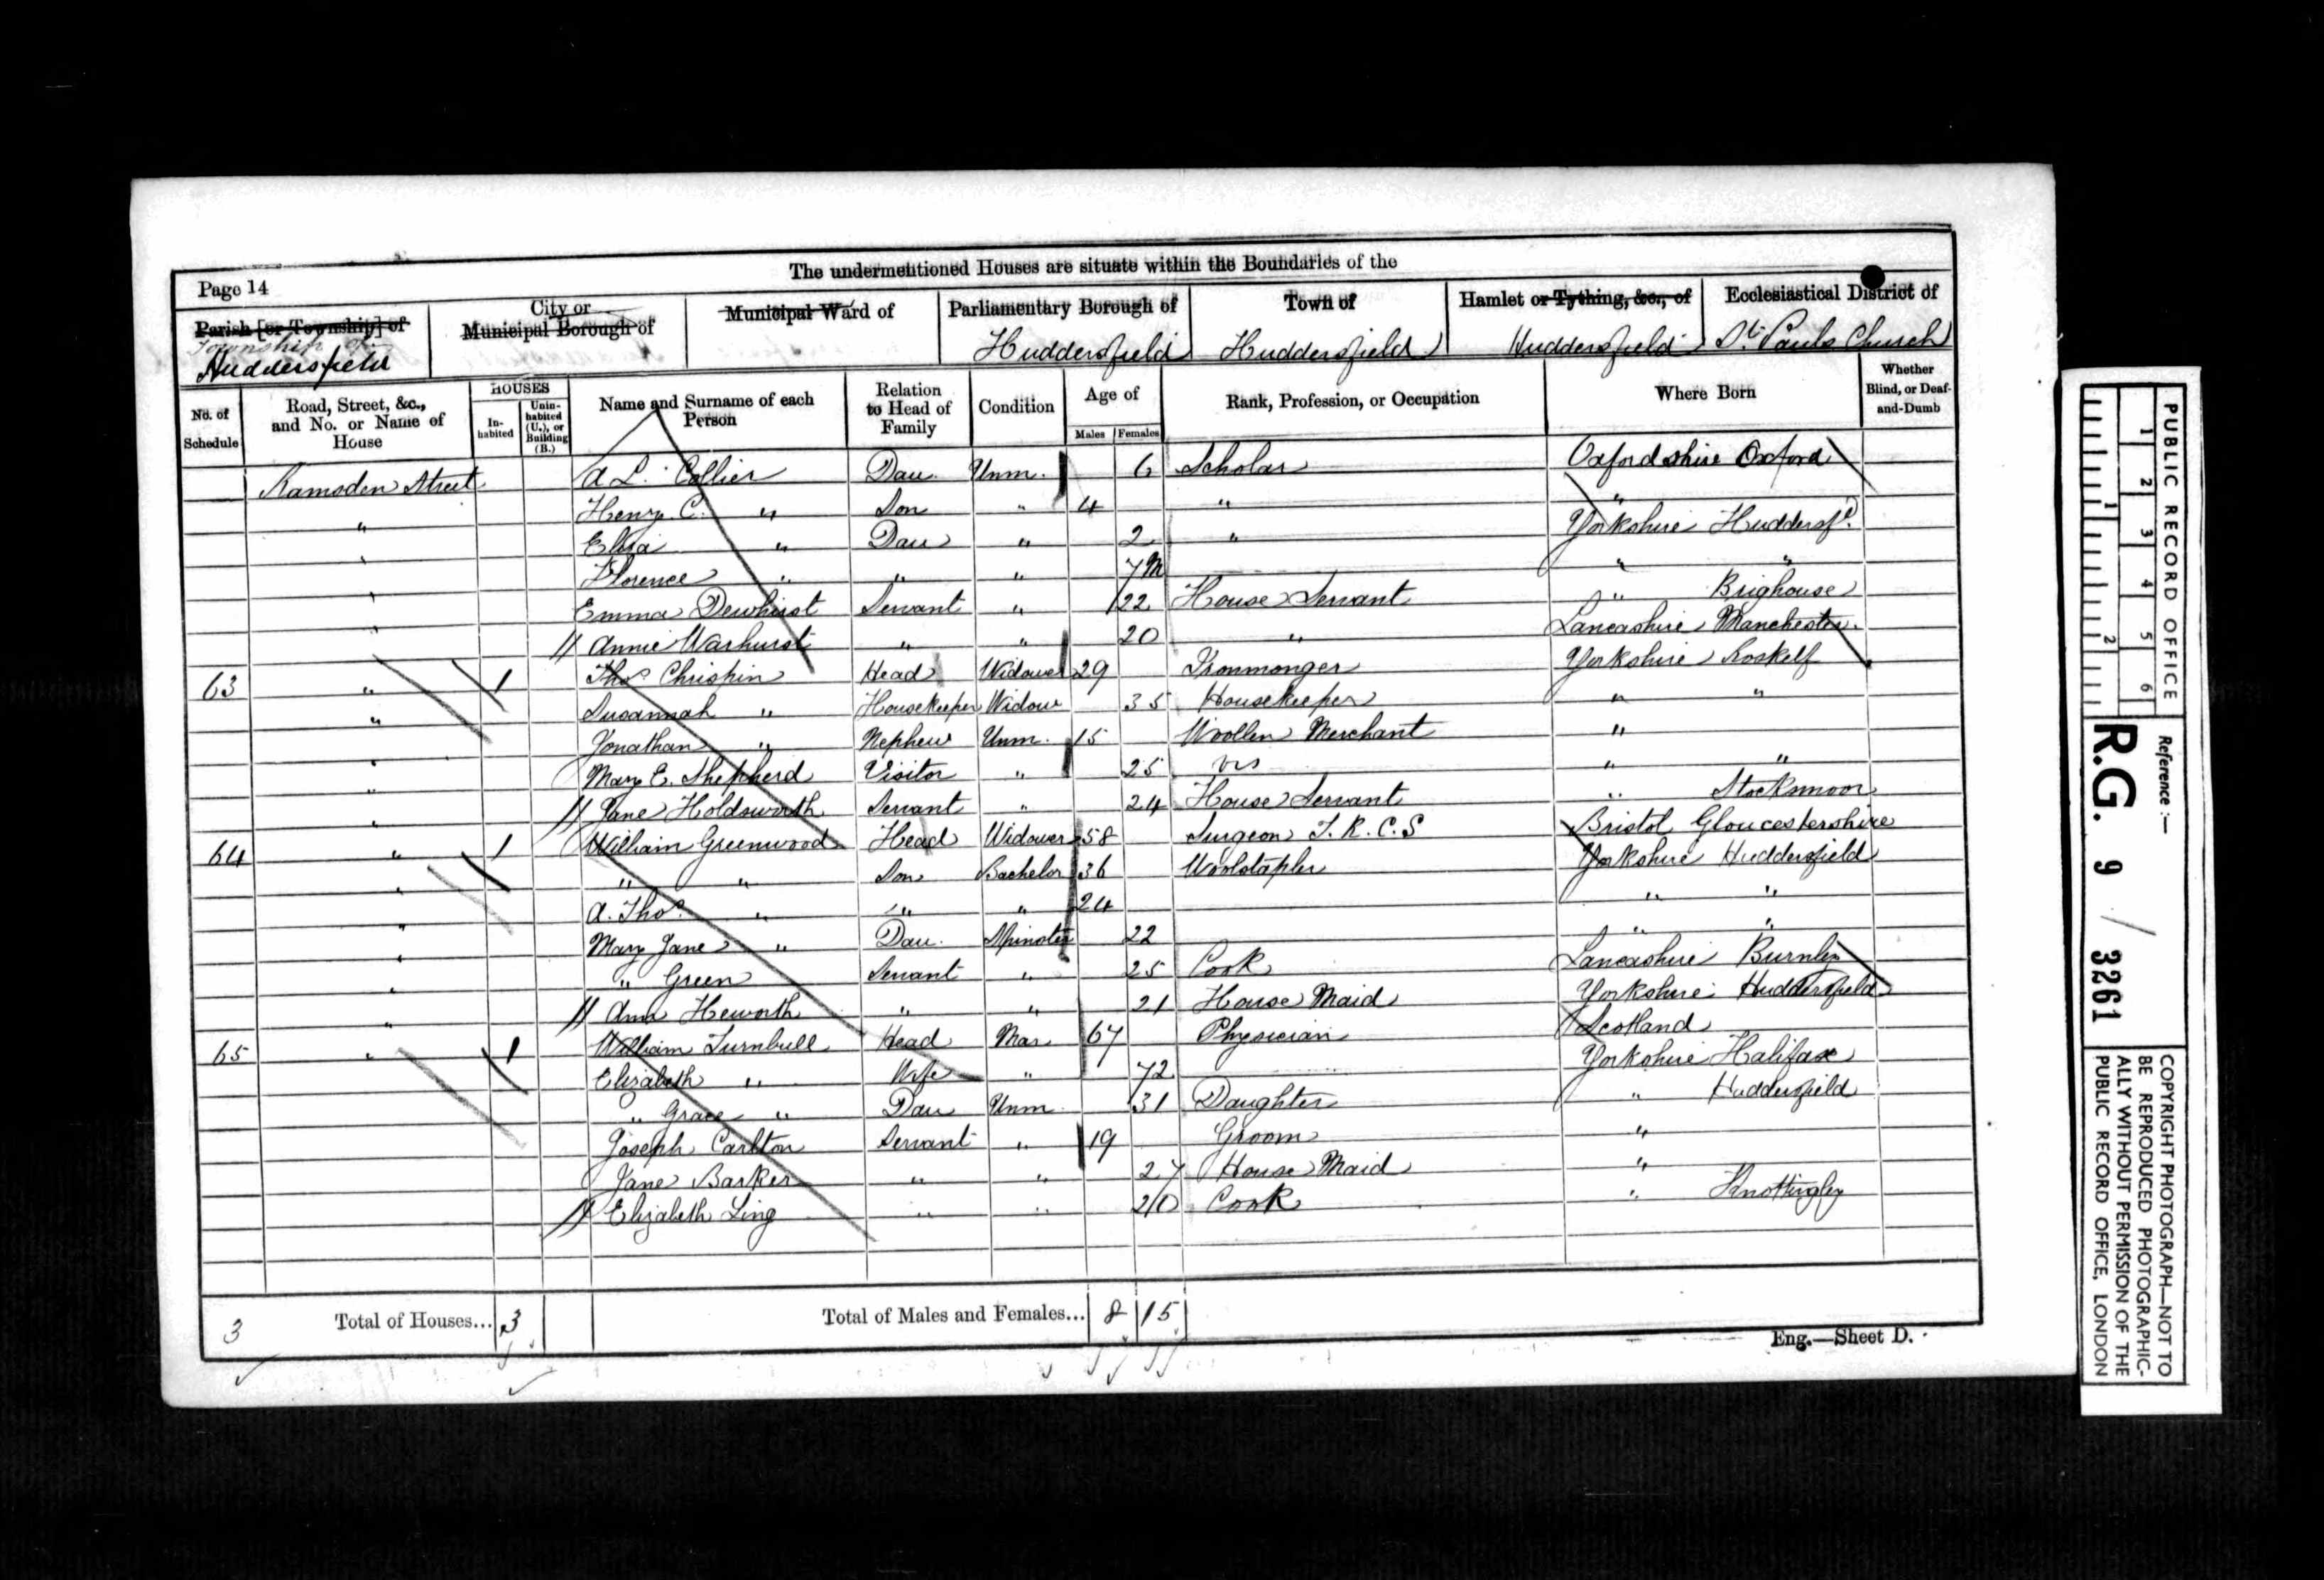 The undermentioned Houses are situate within the Boundaries of the
Page 14
Parish [or Township] of
Township of
Huddersfield
City or
Municipal Borough of
Municipal Ward of
Parliamentary Borough of
Huddersfield
Town of
Huddersfield
Hamlet or Tything, &c., of
Huddersfield
Ecclesiastical District of
St. Pauls Church
No. of Schedule
Road, Street, &c., and No. or Name of House
HOUSES
In-habited
Unin-habited (U.), or Building (B.)
Name and Surname of each Person
Relation to Head of Family
Condition
Age of
Males
Females
Rank, Profession, or Occupation
Where Born
Whether Blind, or Deaf-and-Dumb
Ramsden Street A L. Collier Dau. Unm. 6 Scholar Oxfordshire Oxford
" Henry C. " Son " 4 " "
" Eliza " Dau " 2 " Yorkshire Huddersfd.
" Florence " " " 7 M " "
" Emma Dewhirst Servant " 22 House Servant " Brighouse
" // Annie Warhurst " " 20 " Lancashire Manchester
63 " 1 Thos Chrispin Head Widower 29 Ironmonger Yorkshire Roskelf
" Susannah " Housekeeper Widow 35 Housekeeper " "
" Jonathan " Nephew Unm. 15 Woollen Merchant "
" Mary E. Shepherd Visitor " 25 vis " "
" // Jane Holdsworth Servant " 24 House Servant " Stocksmoor
64 " 1 William Greenwood Head Widower 58 Surgeon F. R. C. S Bristol Gloucestershire
" " " Son Bachelor 36 Woolstapler Yorkshire Huddersfield
" A. Thos. " " " 24 " "
" Mary Jane " Dau. Spinster 22 " "
" " Green Servant " 25 Cook Lancashire Burnley
" // Ann Heworth " " 21 House Maid Yorkshire Huddersfield
65 " 1 William Turnbull Head Mar 67 Physician Scotland
Elizabeth " Wife " 72 Yorkshire Halifax
" Grace " Dau Unm 31 Daughter " Huddersfield
Joseph Carlton Servant " 19 Groom "
Jane Barker " " 27 House Maid "
// Elizabeth Ling " " 20 Cook " Knottingley
3 Total of Houses... 3 Total of Males and Females... 8 15
Eng.—Sheet D.
PUBLIC RECORD OFFICE
1 2 3 4 5 6
1 2
Reference:—
R.G. 9 / 3261
COPYRIGHT PHOTOGRAPH—NOT TO
BE REPRODUCED PHOTOGRAPHIC-
ALLY WITHOUT PERMISSION OF THE
PUBLIC RECORD OFFICE, LONDON